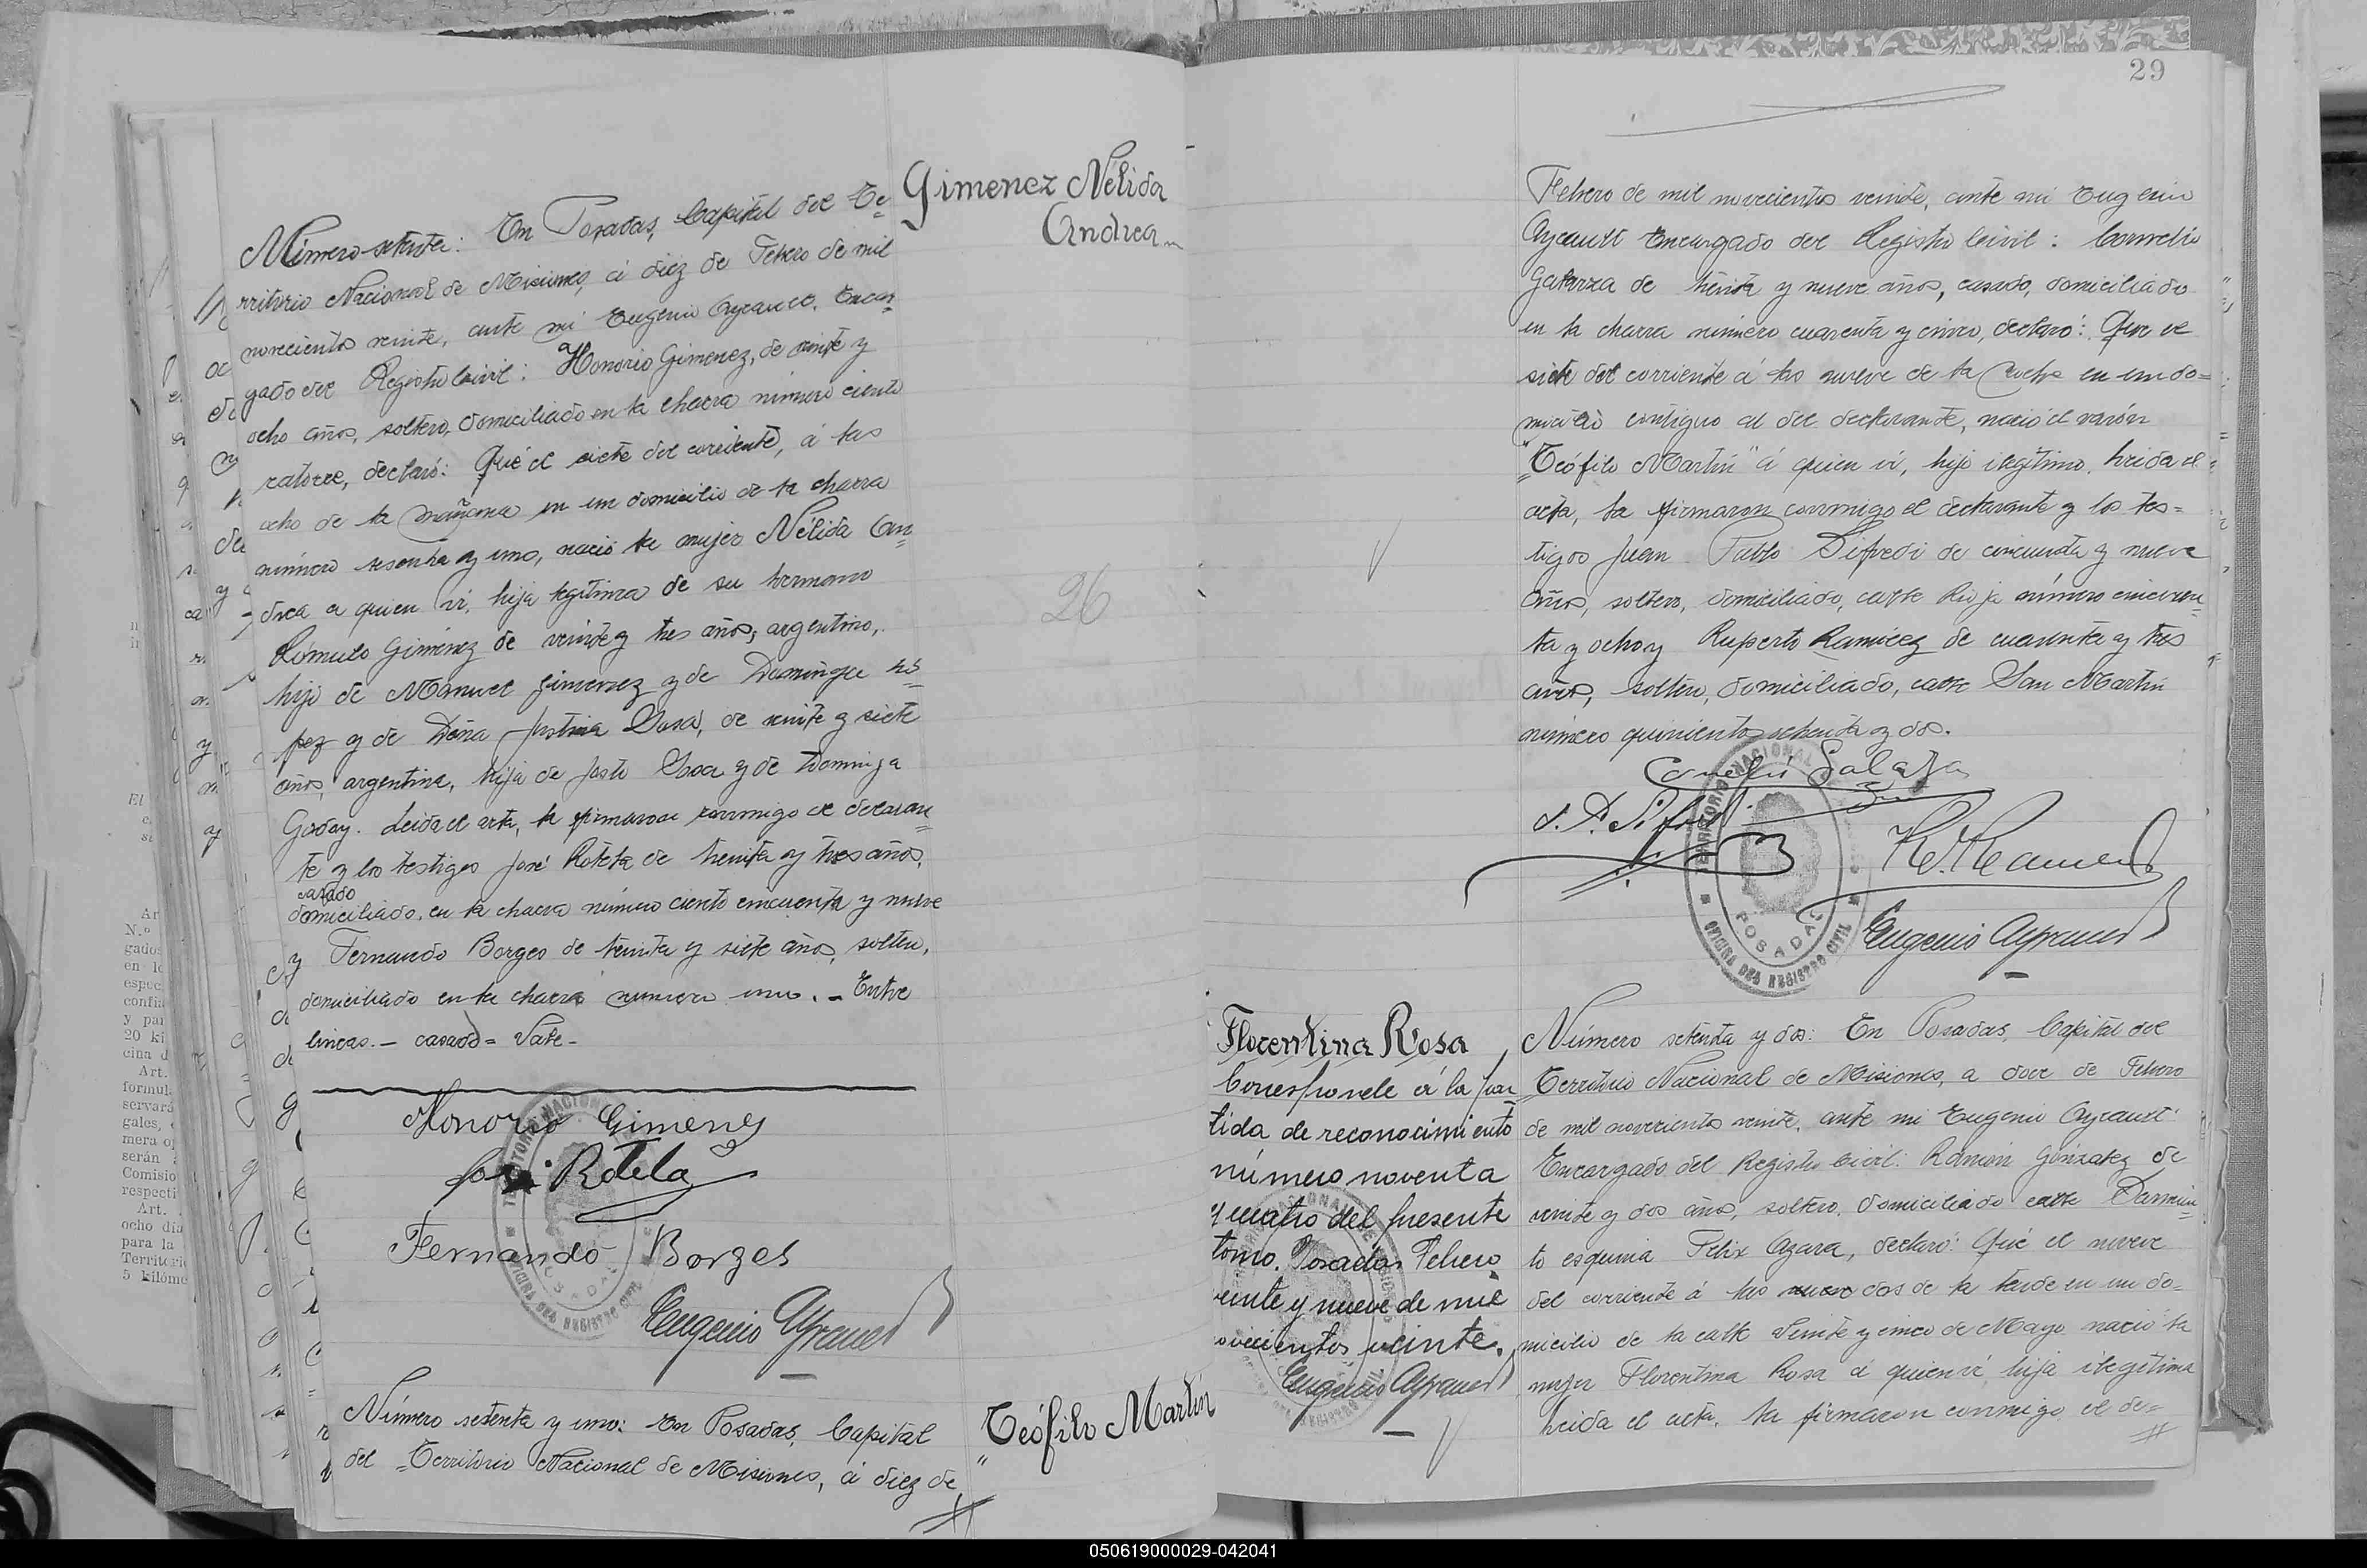 Gimenez Nélida
Andrea
Número setenta: En Posadas, Capital del Te=
rritorio Nacional de Misiones, á diez de Febrero de mil
novecientos veinte, ante mí Eugenio Ayrault. Encar=
gado del Registro Civil: Honorio Gimenez, de veinte y
ocho años, soltero, domiciliado en la chacra número ciento
catorce, declaró: Qué el siete del corriente, á las
ocho de la mañana en un domicilio de la chacra
número sesenta y uno, nació la mujer Nélida An=
drea a quien ví, hija legítima de su hermano
Rómulo Giménez de veinte y tres años, argentino,
hijo de Manuel Gimenez y de Dominga Ló=
pez y de Doña Justina Sosa, de veinte y siete
años, argentina, hija de Justo Sosa y de Dominga
Godoy. Leida el acta, la firmaron conmigo el declaran=
te y los testigos José Rotela de treinta y tres años,
casado
domiciliado, en la chacra número ciento cincuenta y nueve
y Fernando Borges de treinta y siete años, soltero,
domiciliado en la chacra número uno. - Entre
lineas. - casado = Vale -
Honorio Gimenez
José Rotela
Fernando Borges
Eugenio Ayrault
TERRITORIO NACIONAL
POSADAS
OFICINA DEL REGISTRO CIVIL
26
Número setenta y uno: En Posadas, Capital
del Territorio Nacional de Misiones, á diez de
Teófilo Martín
29
Febrero de mil novecientos veinte, ante mi Eugenio
Ayrault Encargado del Registro Civil: Cornelio
Galarza de treinta y nueve años, casado, domiciliado
en la chacra número cuarenta y cinco, declaró: Que el
siete del corriente á las nueve de la noche en un do=
micilio contiguo al del declarante, nació el varón
"Teófilo Martín" á quien ví, hijo ilegítimo. Leida el
acta, la firmaron conmigo el declarante y los tes=
tigos Juan Pablo Sifredi de cincuenta y nueve
años, soltero, domiciliado, calle Rioja número cincuen=
ta y ocho y Ruperto Ramírez de cuarenta y tres
años, soltero, domiciliado, calle San Martín
número quinientos ochenta y dos.
Cornelio Galarza
J. P. Sifredi
R. Ramirez
Eugenio Ayrault
TERRITORIO NACIONAL
POSADAS
OFICINA DEL REGISTRO CIVIL
Florentina Rosa
Corresponde á la par
tida de reconocimiento
número noventa
y cuatro del presente
tomo. Posadas Febrero
veinte y nueve de mil
novecientos veinte.
Eugenio Ayrault
Número setenta y dos: En Posadas, Capital del
Territorio Nacional de Misiones, a doce de Febrero
de mil novecientos veinte, ante mi Eugenio Ayrault
Encargado del Registro Civil: Ramón Gónzalez de
veinte y dos años, soltero, domiciliado calle Sarmien=
to esquina Felix Azara, declaró: Qué el nueve
del corriente á las dos de la tarde en un do=
micilio de la calle Veinte y cinco de Mayo nació la
mujer Florentina Rosa á quien ví hija ilegítima
Leida el acta, la firmaron conmigo el de=
050619000029-042041